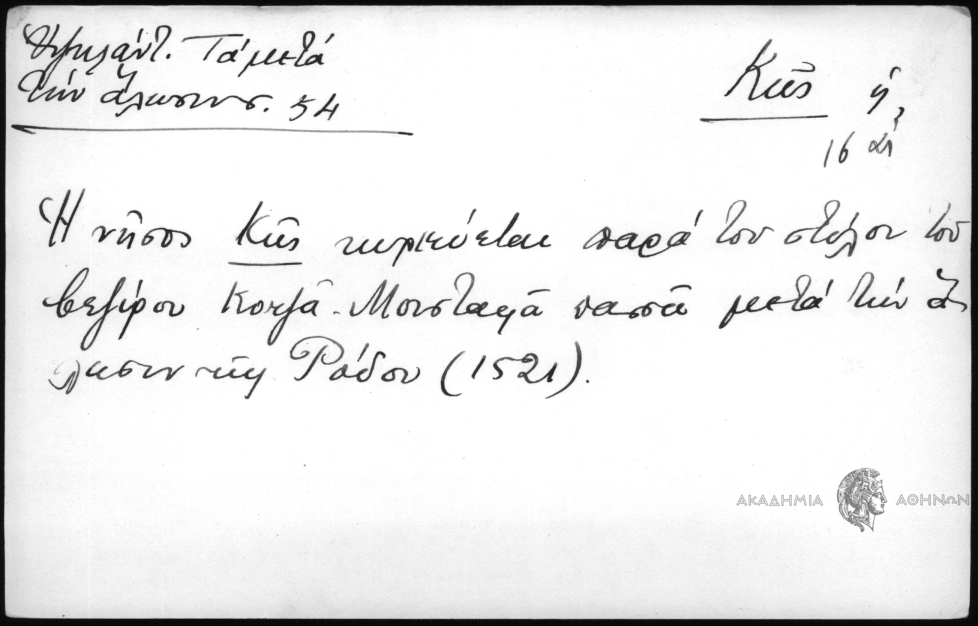 Ὑψηλάντ. Τά μετά
τήν ἅλωσιν σ. 54
Κῶς ἡ
16 αἰ
Ἡ νῆσος Κῶς κυριεύεται παρά τοῦ στόλου τοῦ
βεζίρου Κοτζᾶ-Μουσταφᾶ πασσᾶ μετά τήν ἅ-
λωσιν τῆς Ρόδου (1521).
ΑΚΑΔΗΜΙΑ ΑΘΗΝΩΝ